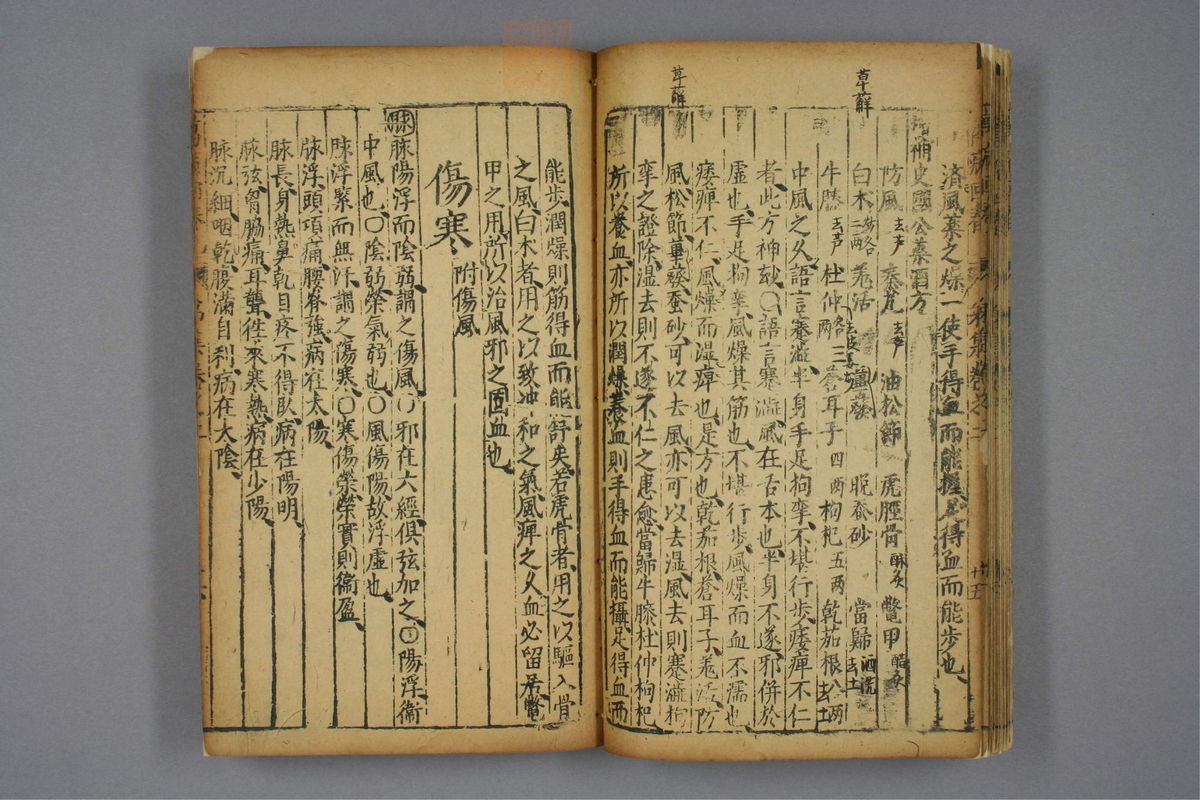 濟風藥之燥一使手得血而能握足得血而能步也
增補史國公藥酒方
防風去芦 秦艽去芦 油松節 虎脛骨酥炙 鱉甲醋炙
白术 羌活 萆薢 晚蚕砂 當歸酒洗去土
牛膝去芦 杜仲 蒼耳子四兩 枸杞五兩 乾茄根八兩去土
中風之久語言蹇澁半身手足拘攣不堪行步痿痺不仁
者此方神效〇語言蹇澁風在舌本也半身不遂邪併於
虛也手足拘攣風燥其筋也不堪行步風燥而血不濡也
痿痺不仁風燥而濕痺也是方也乾茄根蒼耳子羌活防
風松節萆薢蚕砂可以去風亦可以去湿風去則蹇澁拘
攣之證除湿去則不遂不仁之患愈當歸牛膝杜仲枸杞
所以養血亦所以潤燥養血則手得血而能攝足得血而
萆薢
萆薢
能步潤燥則筋得血而能舒矣若虎骨者用之以驅入骨
之風白术者用之以致冲和之氣風痺之久血必留居鱉
甲之用所以治風邪之固血也
傷寒 附傷風
脉 脉陽浮而陰弱謂之傷風〇邪在六經俱弦加之〇陽浮衞
中風也〇陰弱榮氣弱也〇風傷陽故浮虛也
脉浮緊而無汗謂之傷寒〇寒傷榮榮實則衞盈
脉浮頭項痛腰脊強病在太陽
脉長身熱鼻乾目疼不得臥病在陽明
脉弦胷脇痛耳聾徃來寒熱病在少陽
脉沉細咽乾腹滿自利病在太陰